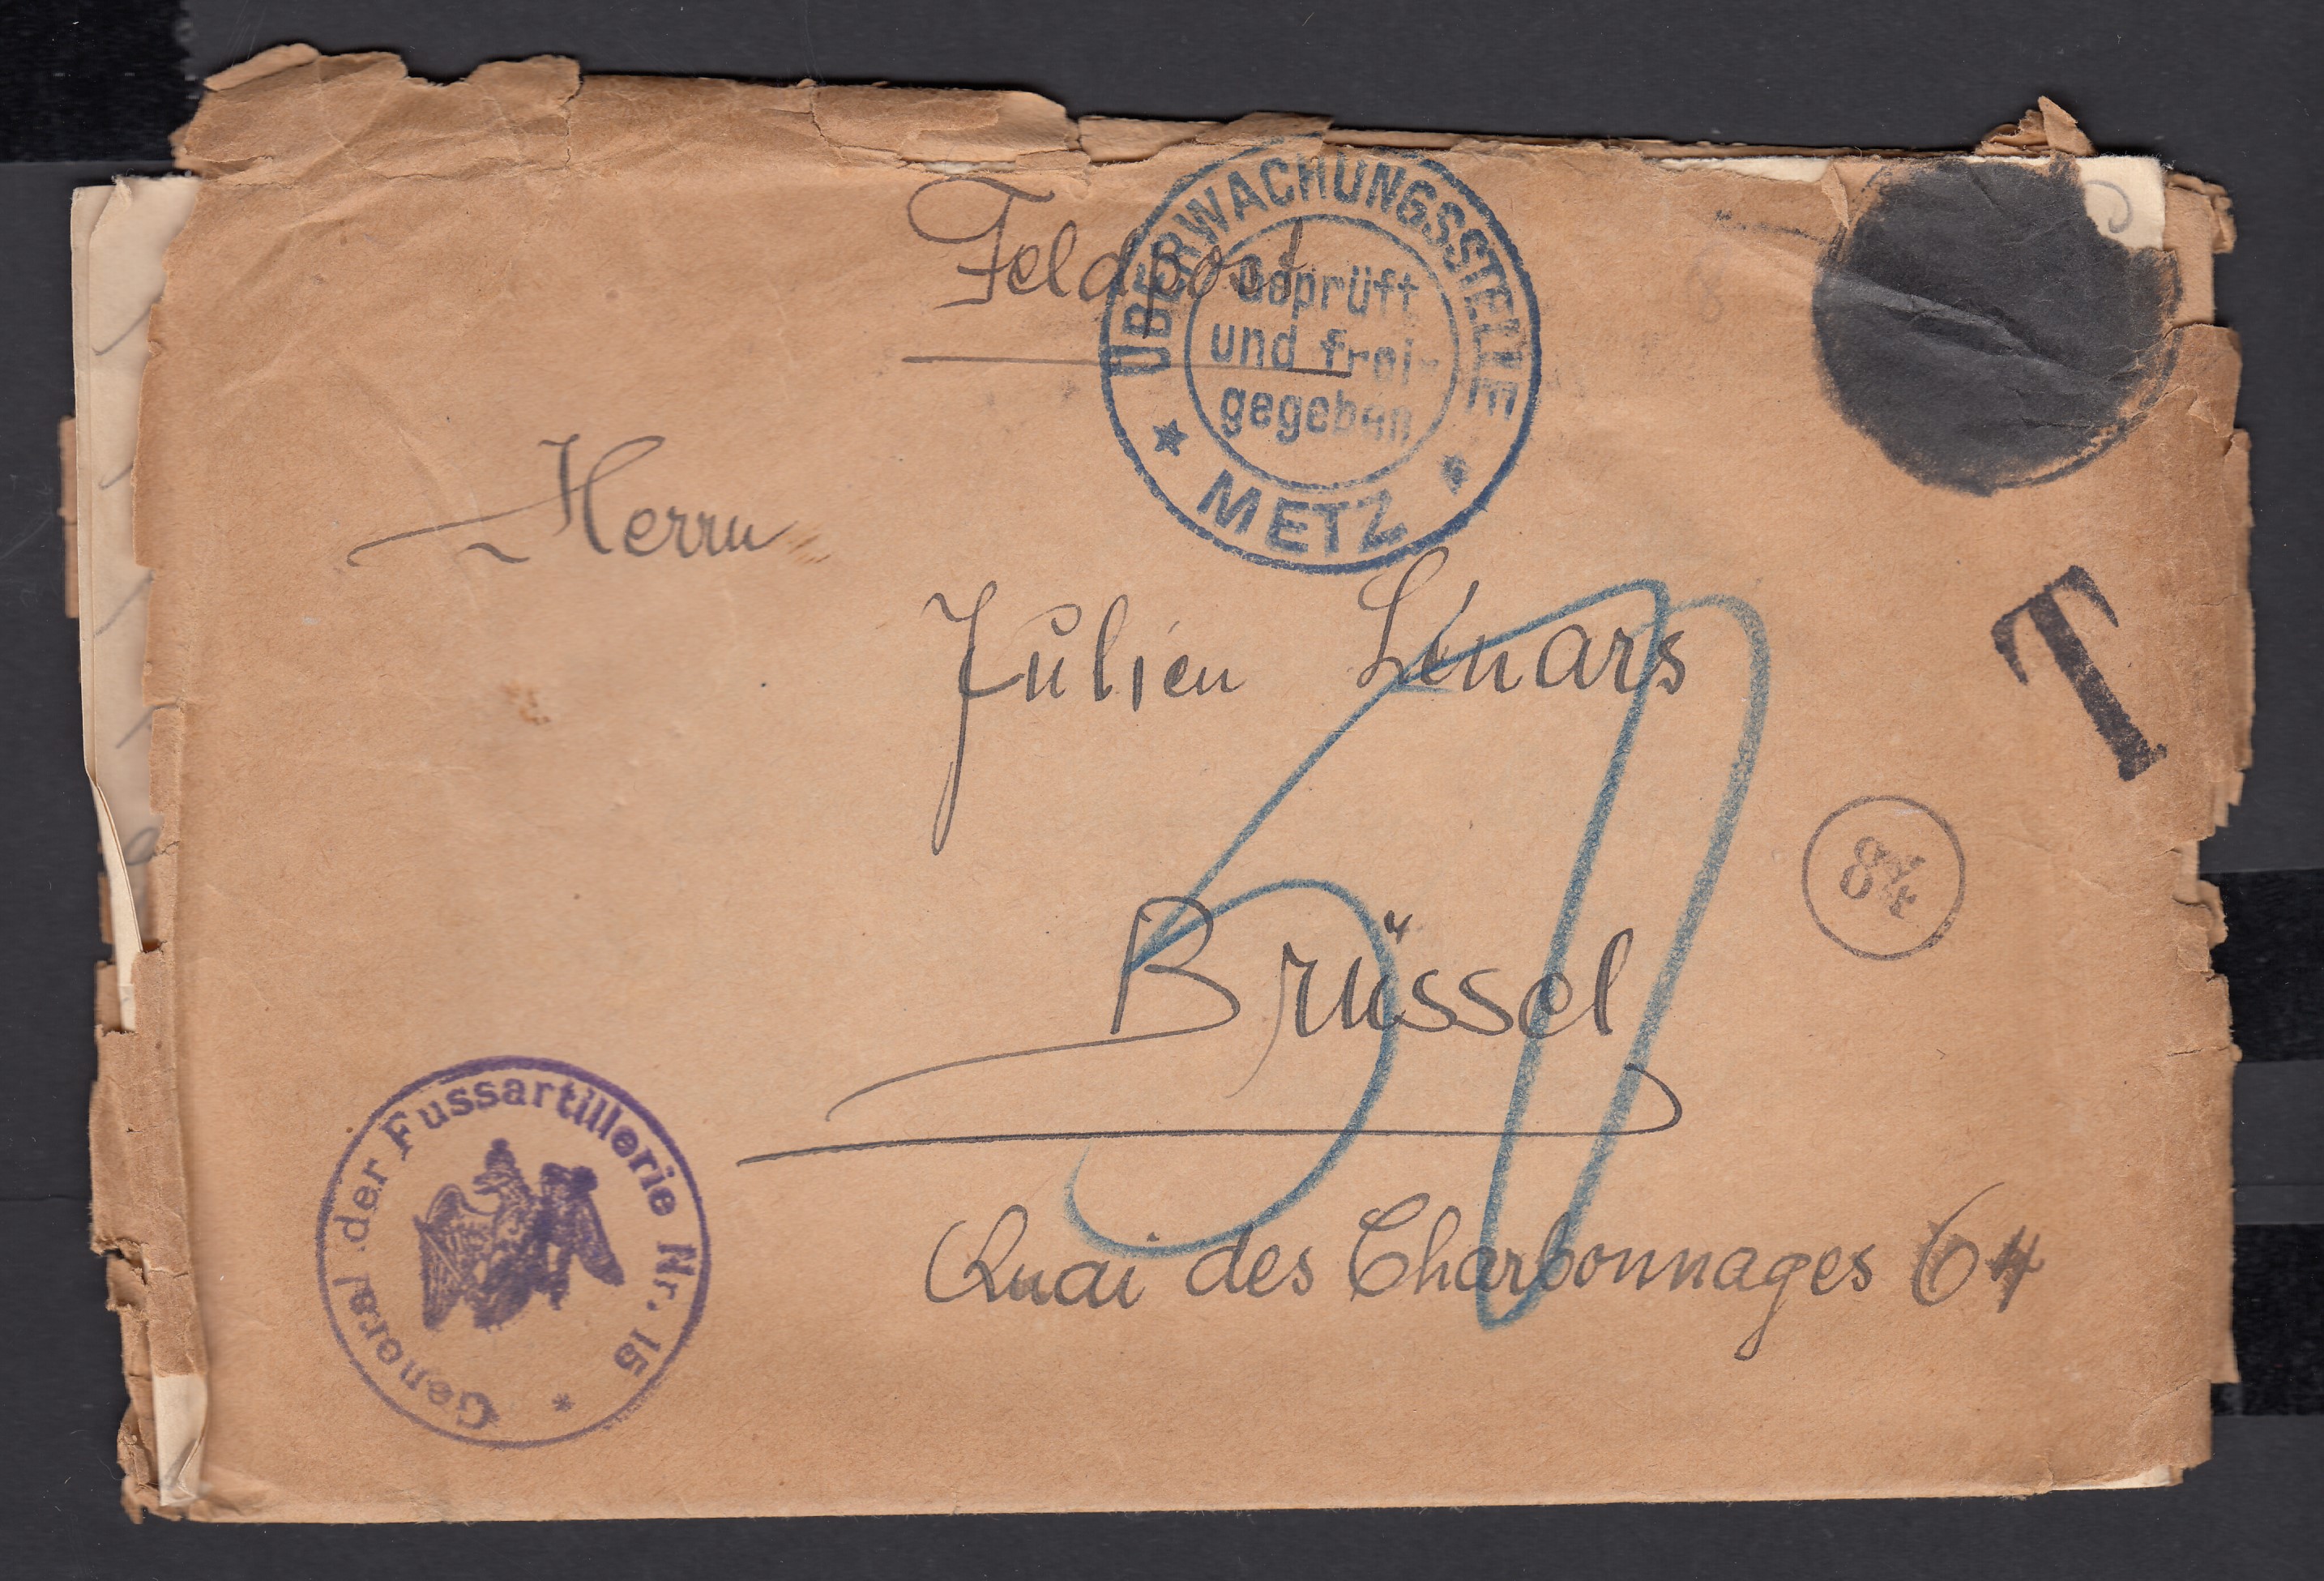 Feldpost
ÜBERWACHUNGSSTELLE
Geprüft
und frei-
gegeben
* METZ *
Herrn
Julien Lénars
T
84
Brüssel
Quai des Charbonnages 64
General der Fussartillerie Nr. 15 *